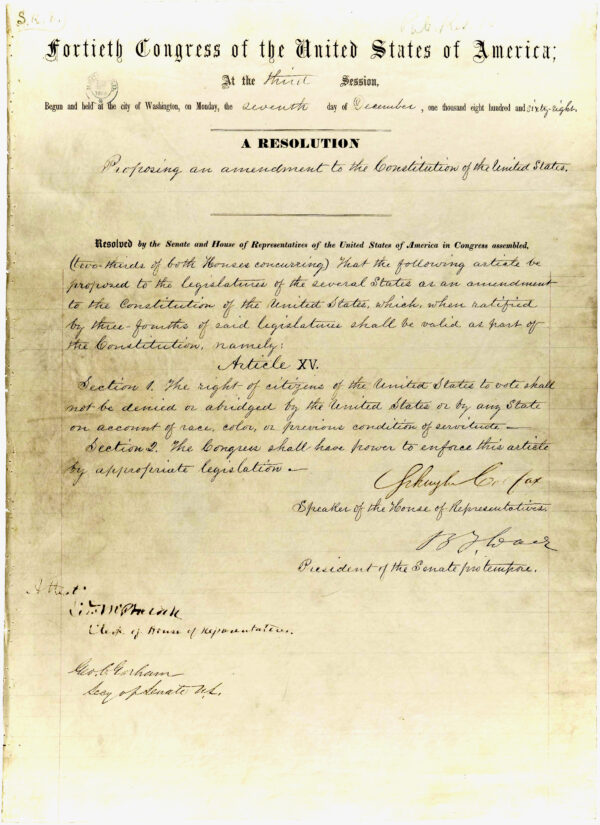 Fortieth Congress of the United States of America;
At the third Session,
Begun and held at the city of Washington, on Monday, the seventh day of December, one thousand eight hundred and sixty-eight.
A RESOLUTION
Proposing an amendment to the Constitution of the United States.
Resolved by the Senate and House of Representatives of the United States of America in Congress assembled,
(two-thirds of both Houses concurring) That the following article be
proposed to the legislatures of the several States as an amendment
to the Constitution of the United States, which, when ratified
by three-fourths of said legislatures shall be valid as part of
the Constitution, namely:
Article XV.
Section 1. The right of citizens of the United States to vote shall
not be denied or abridged by the United States or by any State
on account of race, color, or previous condition of servitude —
Section 2. The Congress shall have power to enforce this article
by appropriate legislation —
Schuyler Colfax
Speaker of the House of Representatives.
B F Wade
President of the Senate pro tempore.
Attest:
McPherson
Clerk of House of Representatives.
Geo. C. Gorham
Secy of Senate U.S.